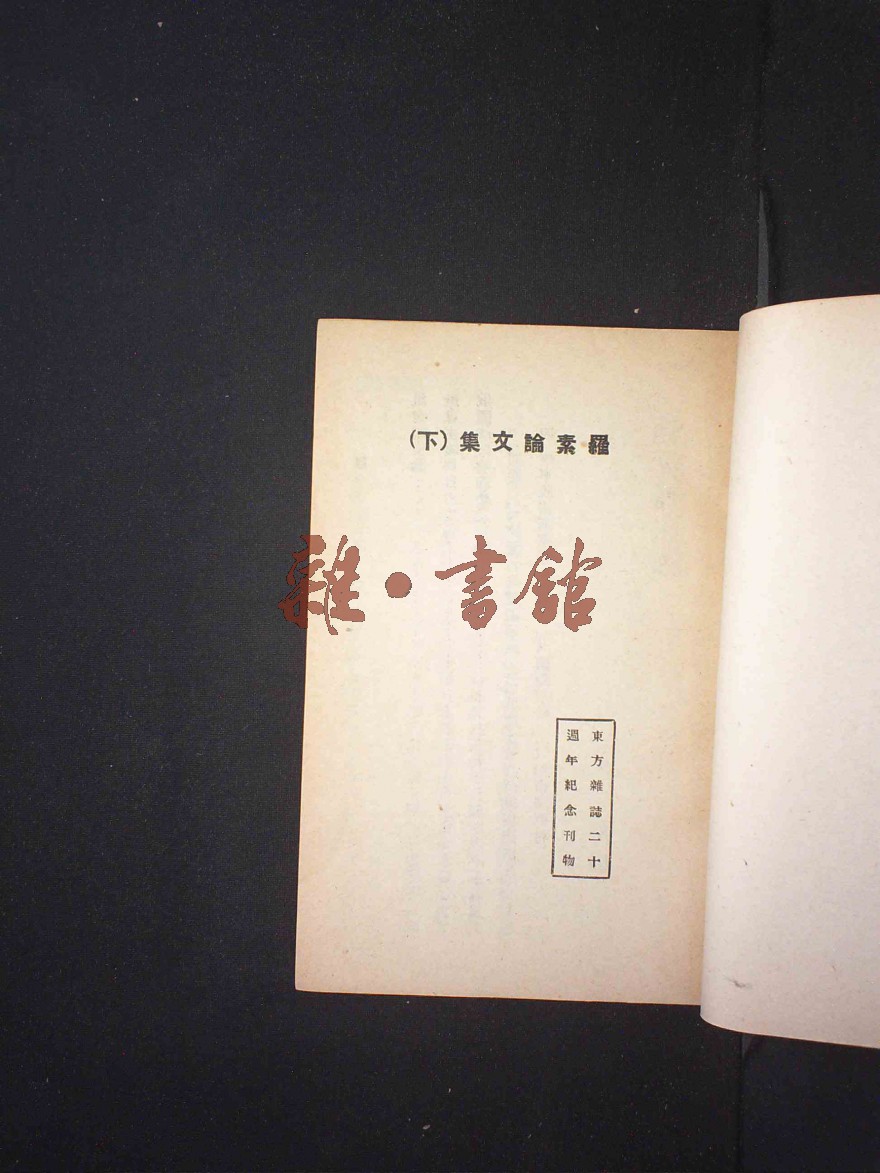 羅素論文集（下）
雜·書館
東方雜誌二十
週年紀念刊物